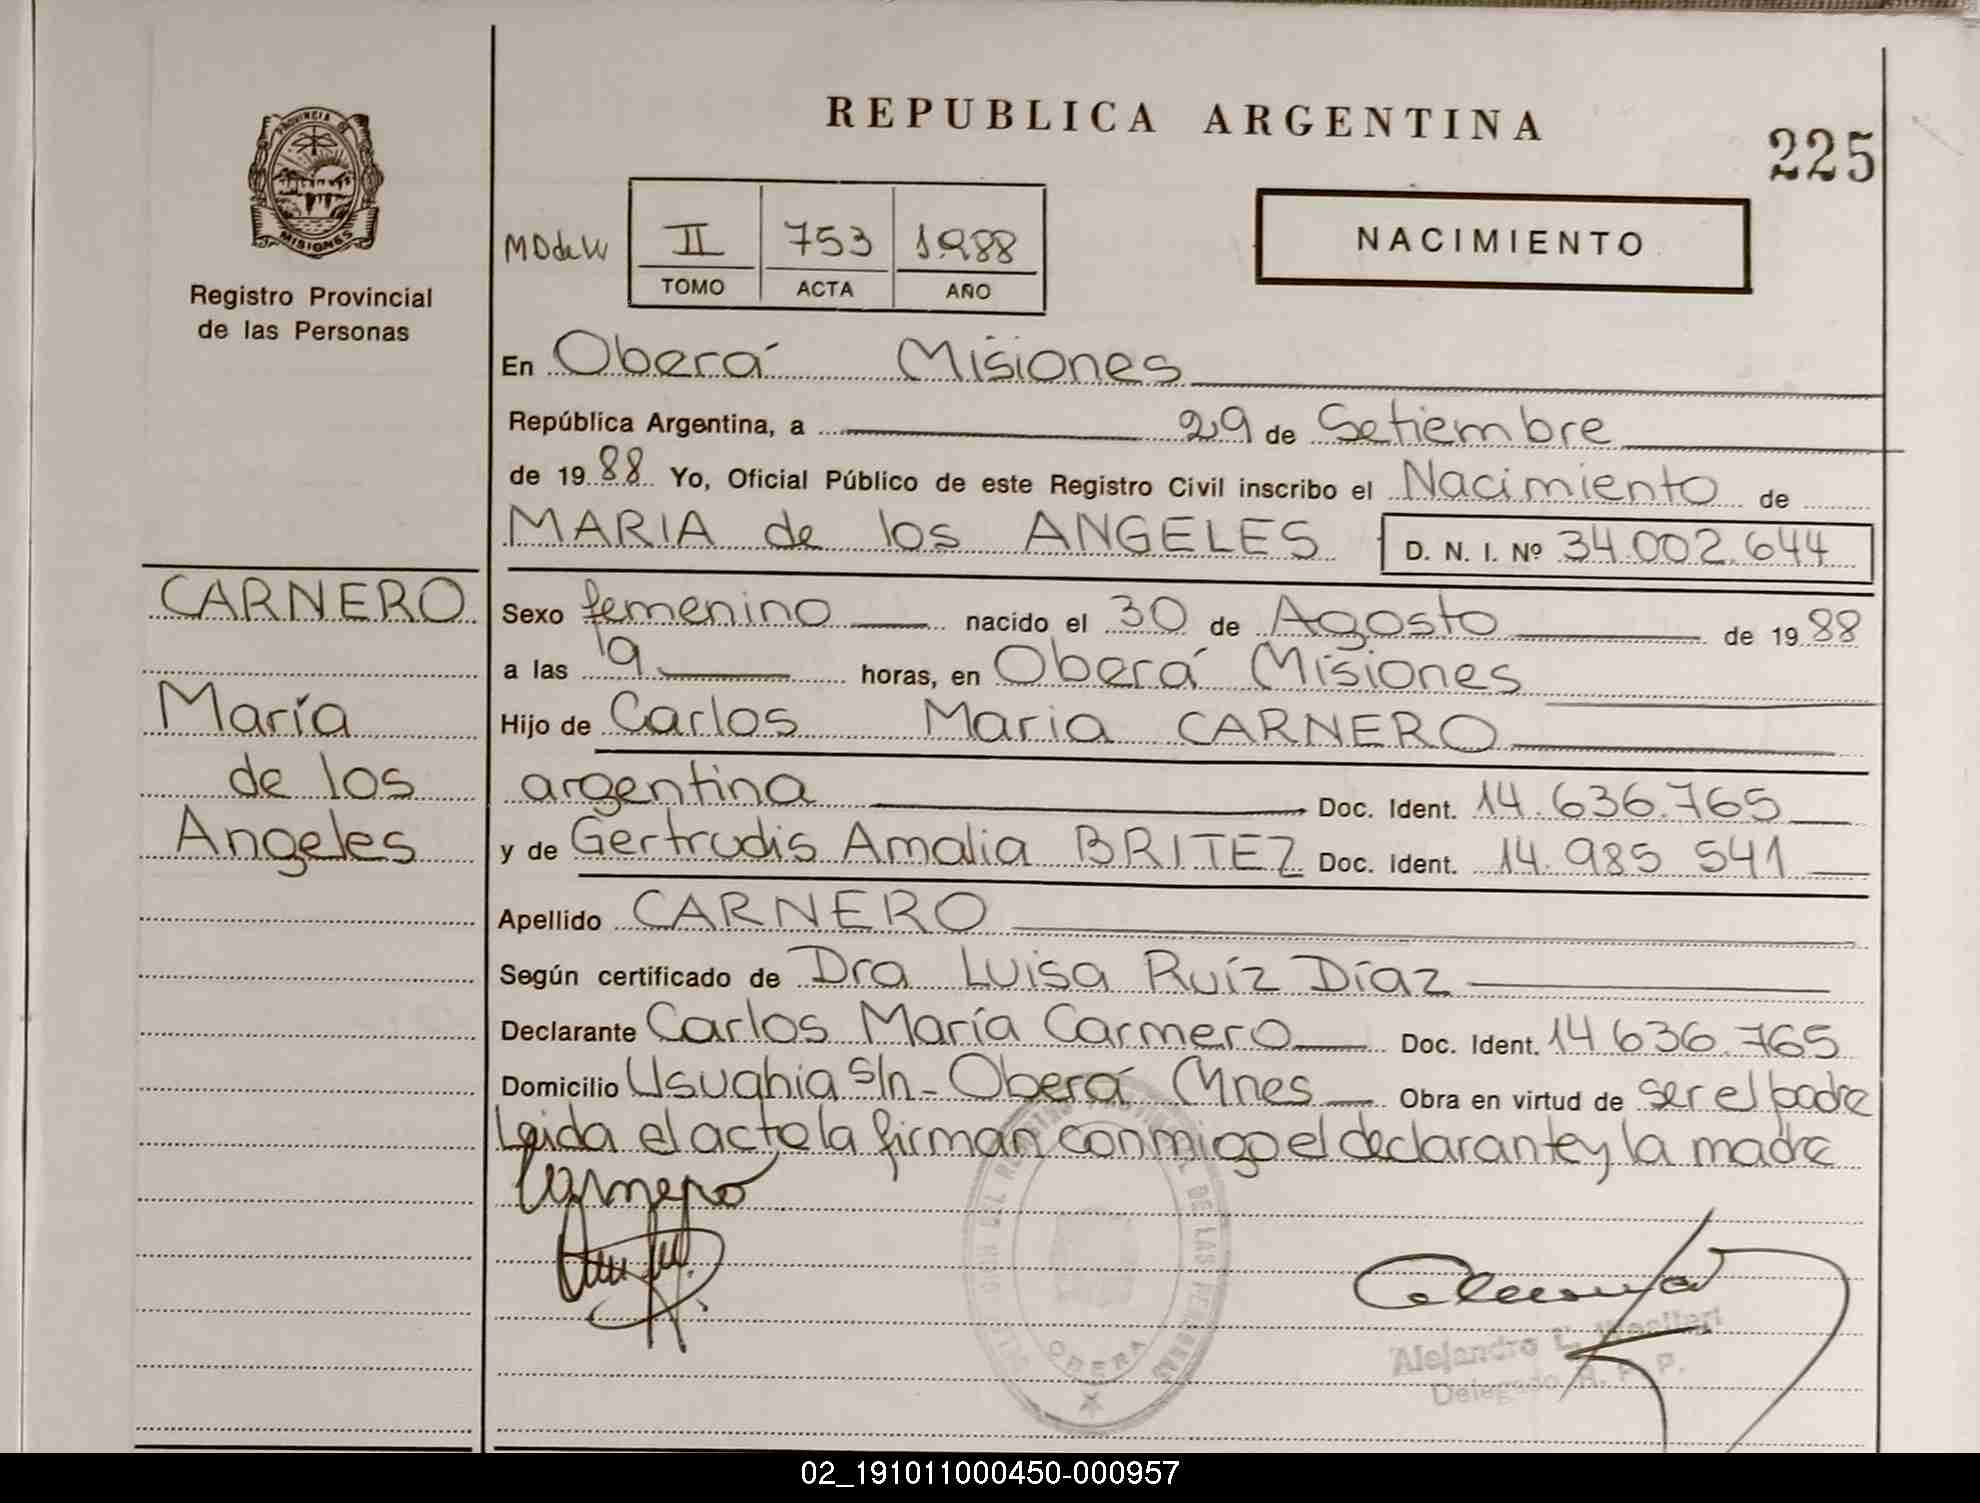 REPUBLICA ARGENTINA
225
PROVINCIA DE
MISIONES
Registro Provincial
de las Personas
II 753 1.988
TOMO ACTA AÑO
NACIMIENTO
En Oberá Misiones
República Argentina, a 29 de Setiembre
de 1988 Yo, Oficial Público de este Registro Civil inscribo el Nacimiento de
MARIA de los ANGELES D. N. I. Nº 34.002.644
CARNERO
María
de los
Angeles
Sexo femenino nacido el 30 de Agosto de 1988
a las 19 horas, en Oberá Misiones
Hijo de Carlos Maria CARNERO
argentina Doc. Ident. 14.636.765
y de Gertrudis Amalia BRITEZ Doc. Ident. 14.985 541
Apellido CARNERO
Según certificado de Dra Luisa Ruíz Díaz
Declarante Carlos María Carmero Doc. Ident. 14 636.765
Domicilio Usuahia S/n - Oberá Mnes Obra en virtud de ser el padre
Leida el acta la firman conmigo el declarante y la madre
Carnero
OBERA
Alejandro
Delegado R. P. P.
02_191011000450-000957